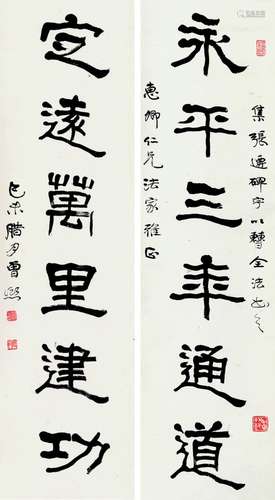 永平三年通道
集張遷碑字以
全法
惠卿仁兄法家雅正
定遠萬里建功
己未臘月曾熙